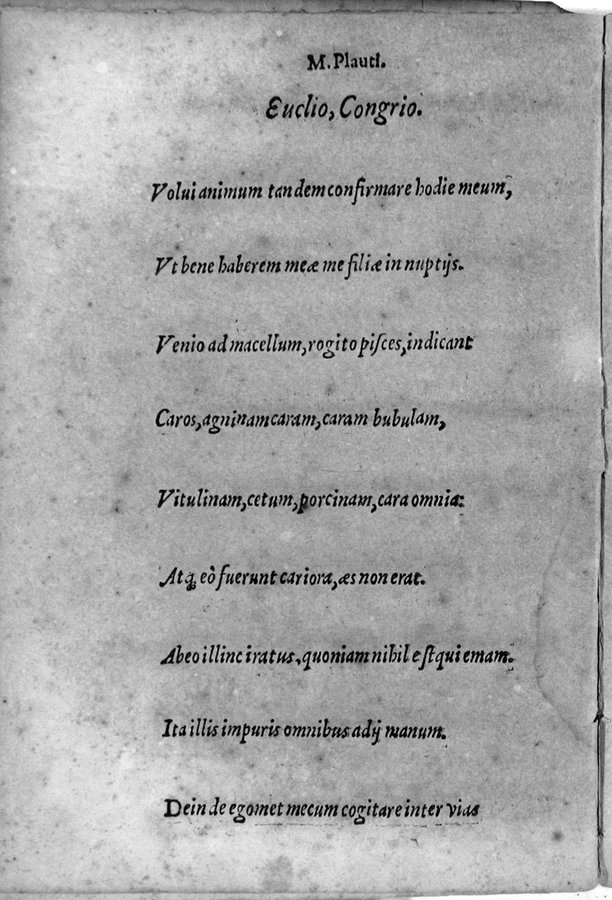 M. Plauti.
Euclio, Congrio.
Volui animum tandem confirmare hodie meum,
Vt bene haberem meæ me filiæ in nuptijs.
Venio ad macellum, rogito piſces, indicant
Caros, agninam caram, caram bubulam,
Vitulinam, cetum, porcinam, cara omnia:
Atq́; eò fuerunt cariora, æs non erat.
Abeo illinc iratus, quoniam nihil eſt qui emam.
Ita illis impuris omnibus adij manum.
Dein de egomet mecum cogitare inter vias